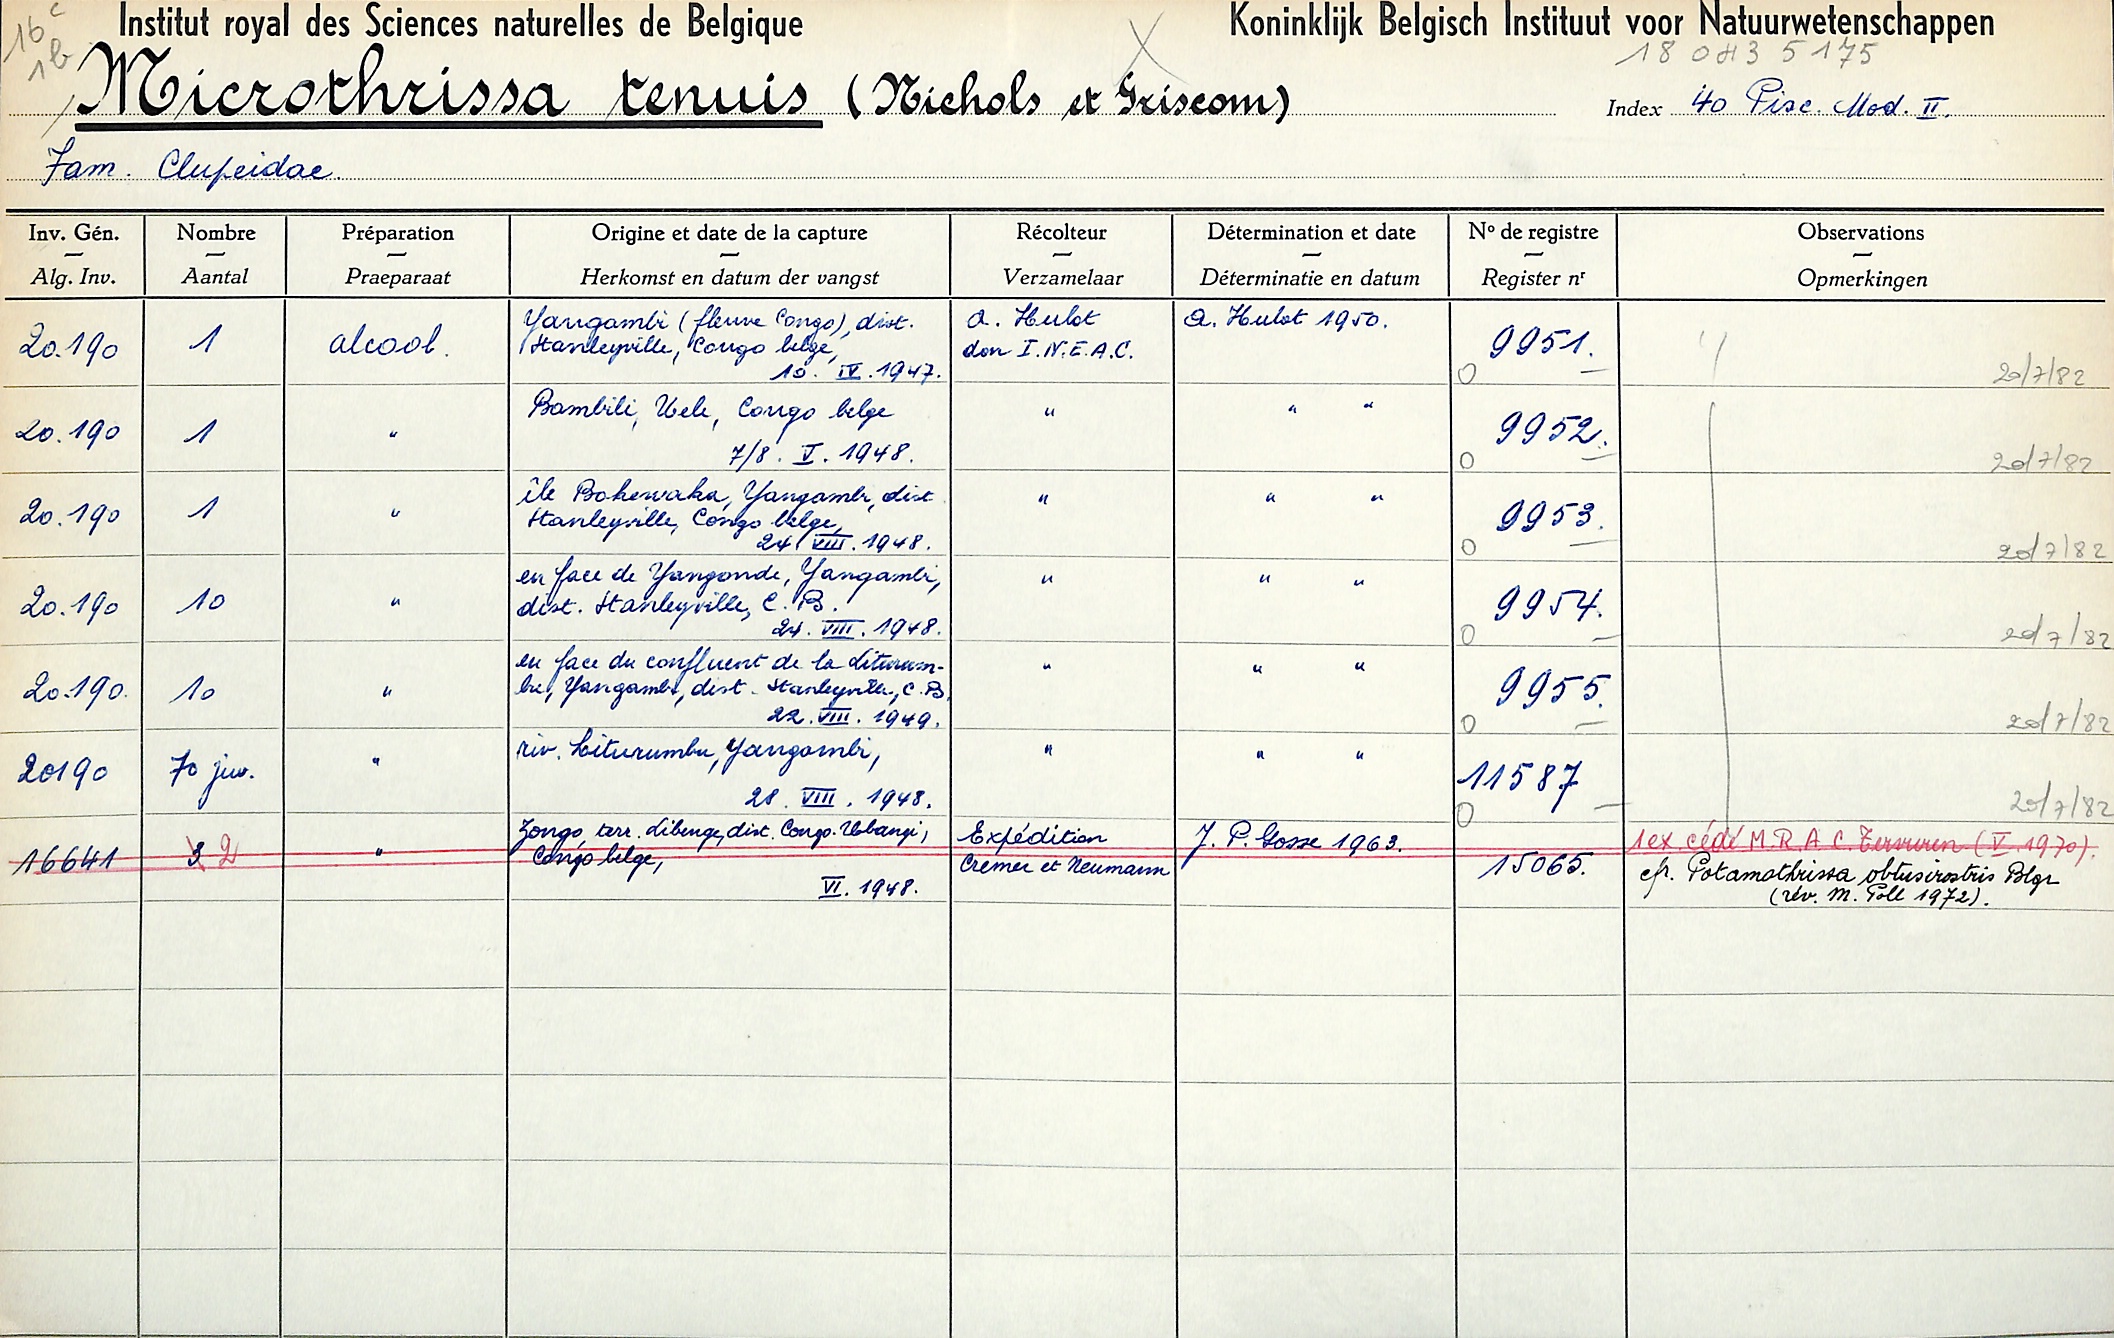 16c
1b
Institut royal des Sciences naturelles de Belgique
Koninklijk Belgisch Instituut voor Natuurwetenschappen
18 043 5175
Microthrissa tenuis (Nichols et Griscom)
Index 40 Pisc. Mod. II.
Fam. Clupeidae.
Inv. Gén. Nombre Préparation Origine et date de la capture Récolteur Détermination et date No de registre Observations
Alg. Inv. Aantal Praeparaat Herkomst en datum der vangst Verzamelaar Déterminatie en datum Register nr Opmerkingen
20.190 1 alcool. Yangambi (fleuve Congo), dist. A. Hulot A. Hulot 1950. 9951.
Stanleyville, Congo belge, don I.N.E.A.C.
10. IV. 1947. 0 20/7/82
20.190 1 " Bambili, Uele, Congo belge " " " 9952.
7/8. V. 1948. 0 20/7/82
20.190 1 " île Bokewaka, Yangambi, dist. " " " 9953.
Stanleyville, Congo belge,
24. VIII. 1948. 0 20/7/82
20.190 10 " en face de Yangonde, Yangambi, " " " 9954.
dist. Stanleyville, C. B.
24. VIII. 1948. 0 20/7/82
20.190. 10 " en face du confluent de la Liturum- " " " 9955.
be, Yangambi, dist. Stanleyville, C. B.
22. VIII. 1949. 0 20/7/82
20190 70 juv. " riv. Liturumbu, Yangambi, " " " 11587
28. VIII. 1948. 0 20/7/82
16641 3 2 " Zongo, terr. Libenge, dist. Congo-Ubangi, Expédition J. P. Gosse 1963. 15065. 1 ex cédé M.R.A.C. Tervuren (V. 1970).
Congo belge, Cremer et Neumann cfr. Potamothrissa obtusirostris Blgr
VI. 1948. (rév. M. Poll 1972).